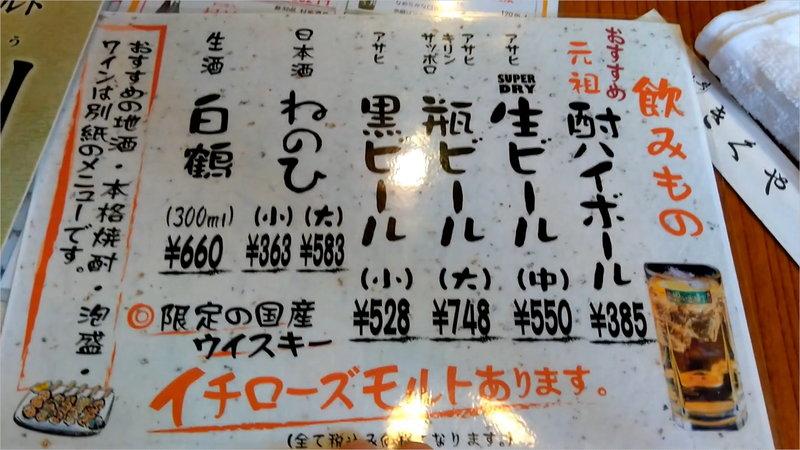 飲みもの
おすすめ
元祖
酎ハイボール
¥385
アサヒ
SUPER
DRY
生ビール
(中)
¥550
アサヒ
キリン
サッポロ
瓶ビール
(大)
¥748
アサヒ
黒ビール
(小)
¥528
日本酒
ねのひ
(大)
¥583
(小)
¥363
生酒
白鶴
(300ml)
¥660
◎限定の国産
ウイスキー
イチローズモルトあります。
おすすめの地酒・本格焼酎・泡盛・
ワインは別紙のメニューです。
(全て税込み なります)